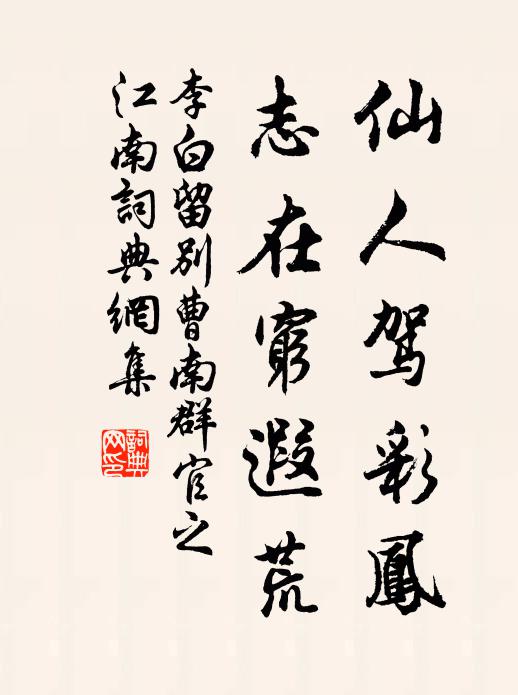 仙人驾彩鳳
志在窮遐荒
李白留别曹南群官之
江南詞典網集
詞典网印